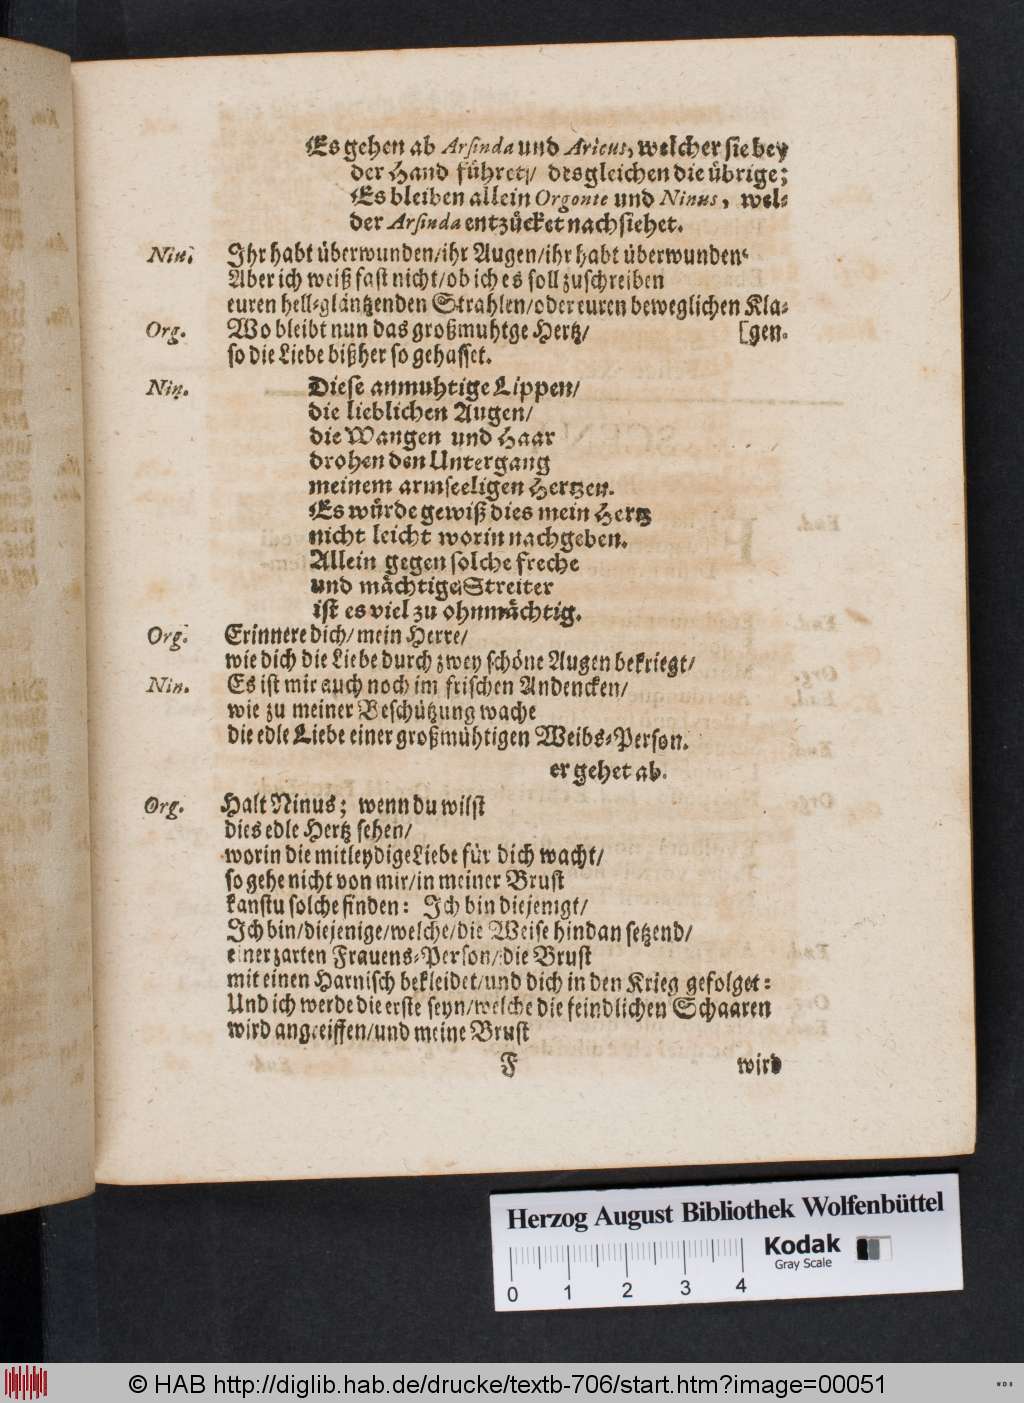 Es gehen ab Arsinda und Aricus, welcher sie bey
der Hand führet/ desgleichen die übrige;
Es bleiben allein Orgonte und Ninus, wel-
der Arsinda entzücket nachsiehet.
Nin. Ihr habt überwunden/ihr Augen/ihr habt überwunden.
Aber ich weiß fast nicht/ob ich es soll zuschreiben
euren hell-gläntzenden Strahlen/oder euren beweglichen Kla-
Org. Wo bleibt nun das großmuhtge Hertz/ [gen.
so die Liebe bißher so gehasset.
Nin. Diese anmuhtige Lippen/
die lieblichen Augen/
die Wangen und Haar
drohen den Untergang
meinem armseeligen Hertzen.
Es würde gewiß dies mein Hertz
nicht leicht worin nachgeben.
Allein gegen solche freche
und mächtige Streiter
ist es viel zu ohnmächtig.
Org. Erinnere dich/mein Herre/
wie dich die Liebe durch zwey schöne Augen bekriegt/
Nin. Es ist mir auch noch im frischen Andencken/
wie zu meiner Beschützung wache
die edle Liebe einer großmühtigen Weibs-Person.
er gehet ab.
Org. Halt Ninus; wenn du wilst
dies edle Hertz sehen/
worin die mitleydige Liebe für dich wacht/
so gehe nicht von mir/in meiner Brust
kanstu solche finden: Ich bin diejenigt/
Ich bin/diejenige/welche/die Weise hindan setzend/
einer zarten Frauens-Person/die Brust
mit einen Harnisch bekleidet/und dich in den Krieg gefolget:
Und ich werde die erste seyn/welche die feindlichen Schaaren
wird angreiffen/und meine Brust
F wird
Herzog August Bibliothek Wolfenbüttel
Kodak
Gray Scale
0 1 2 3 4
© HAB http://diglib.hab.de/drucke/textb-706/start.htm?image=00051